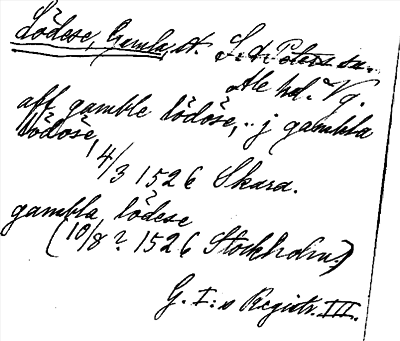 Lödese, Gamla, st. S:t Peters sn.
Ale hd. Vg.
aff gamble lödöse, .. j gambla
lödöse, 14/3 1526 Skara.
gambla lödese
(10/8? 1526 Stockholm)
G. I:s Registr. III.